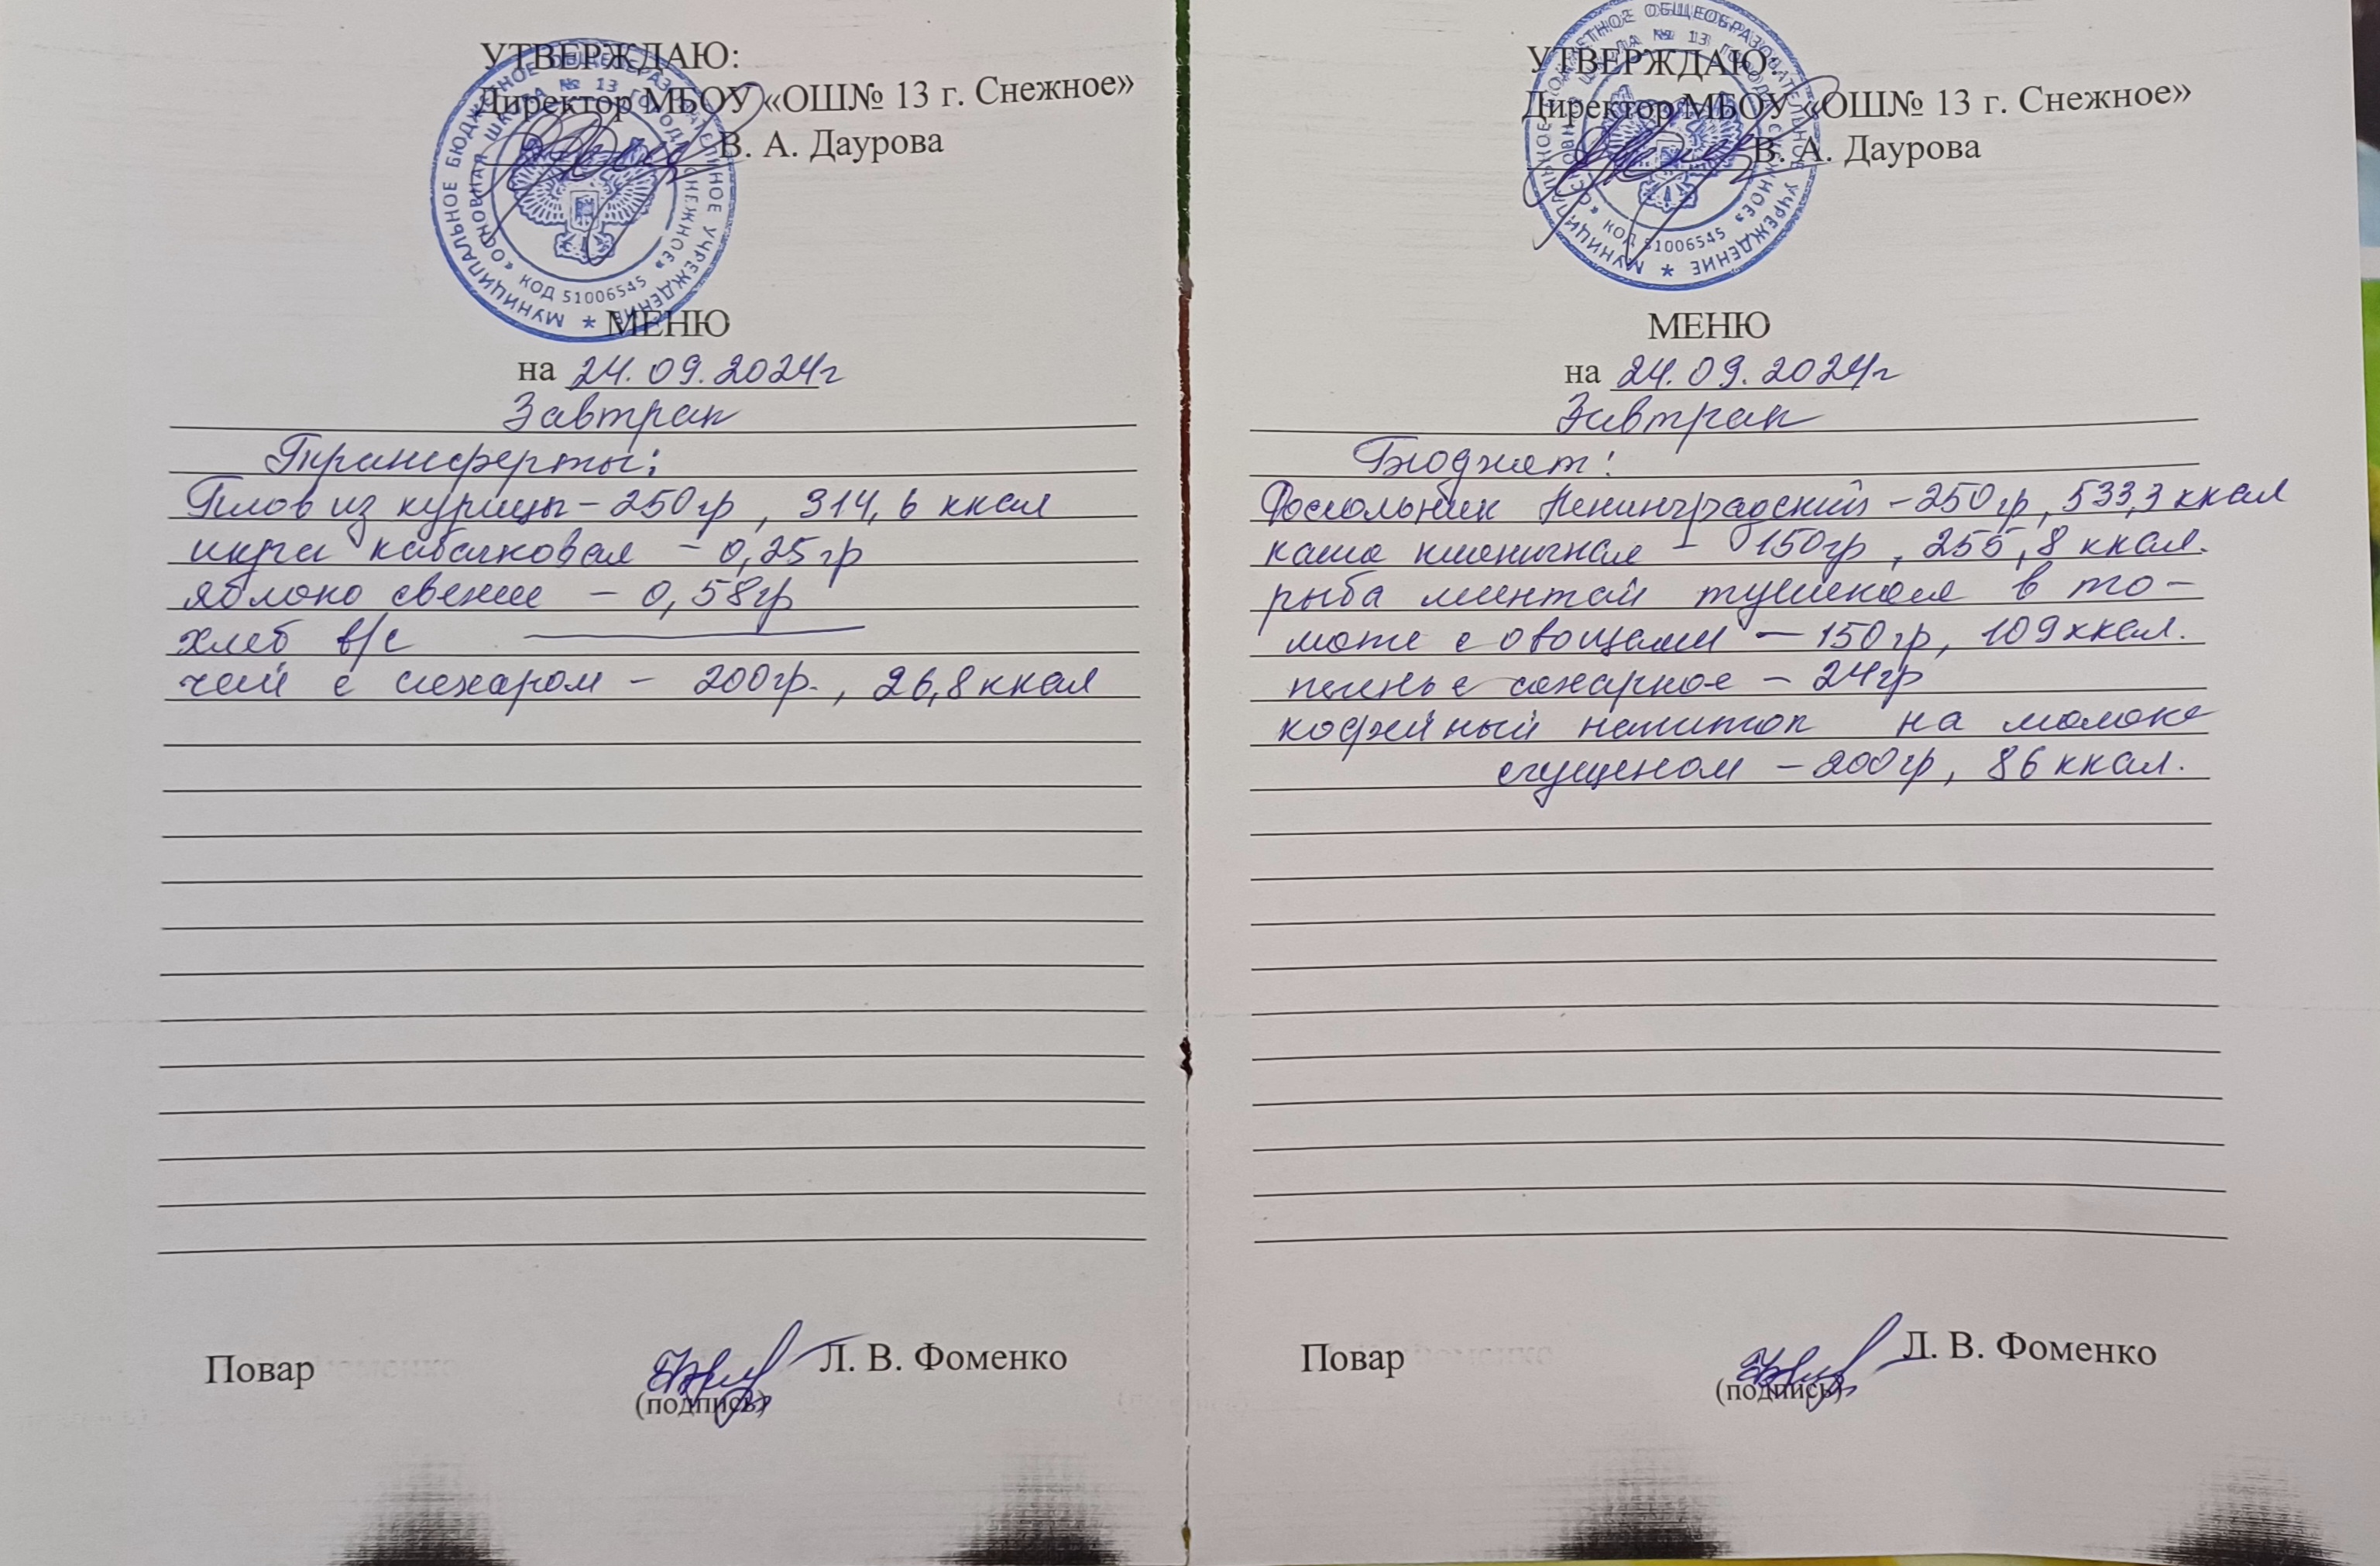 УТВЕРЖДАЮ:
Директор МБОУ «ОШ№ 13 г. Снежное»
В. А. Даурова
МУНИЦИПАЛЬНОЕ БЮДЖЕТНОЕ ОБЩЕОБРАЗОВАТЕЛЬНОЕ УЧРЕЖДЕНИЕ *
«ОСНОВНАЯ ШКОЛА № 13 ГОРОДА СНЕЖНОЕ»
КОД 51006545
МЕНЮ
на 24.09.2024г
Завтрак
Трансферты:
Плов из курицы – 250гр, 314,6 ккал
икра кабачковая – 0,25гр
яблоко свежее – 0,58гр
хлеб в/с
чай с сахаром – 200гр., 26,8 ккал
Повар
Л. В. Фоменко
(подпись)
УТВЕРЖДАЮ:
Директор МБОУ «ОШ№ 13 г. Снежное»
В. А. Даурова
МУНИЦИПАЛЬНОЕ БЮДЖЕТНОЕ ОБЩЕОБРАЗОВАТЕЛЬНОЕ УЧРЕЖДЕНИЕ *
«ОСНОВНАЯ ШКОЛА № 13 ГОРОДА СНЕЖНОЕ»
КОД 51006545
МЕНЮ
на 24.09.2024г
Завтрак
Бюджет:
Рассольник Ленинградский – 250гр, 533,3 ккал
каша пшеничная – 150гр, 255,8 ккал.
рыба минтай тушеная в то–
мате с овощами – 150гр, 109 ккал.
печенье сахарное – 24гр
кофейный напиток на молоке
сгущеном – 200гр, 86 ккал.
Повар
Л. В. Фоменко
(подпись)